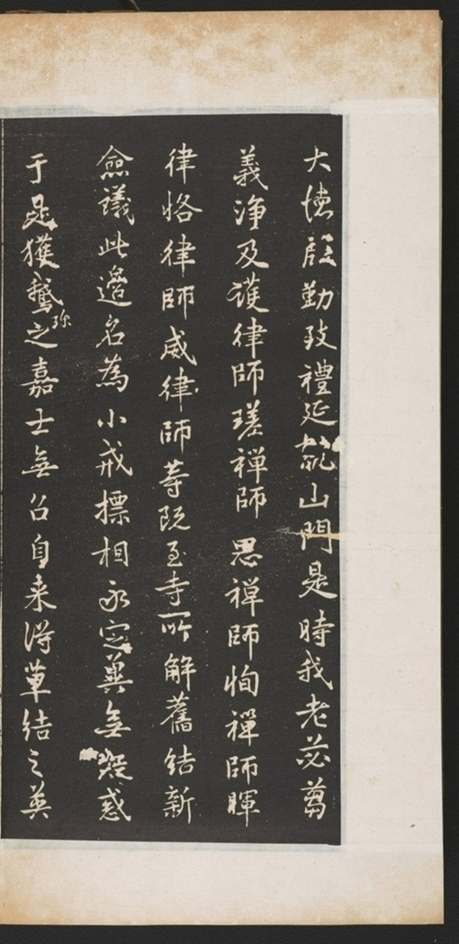 大德殷勤致禮延就山門是時我老苾芻
義淨及護律師瑳禪師思禪師恂禪師暉
律恪律師威律師等既至寺所解舊結新
僉議此邊名為小戒摽相永定冀無疑惑
于是獲鵝珎之嘉士無召自来得草結之英